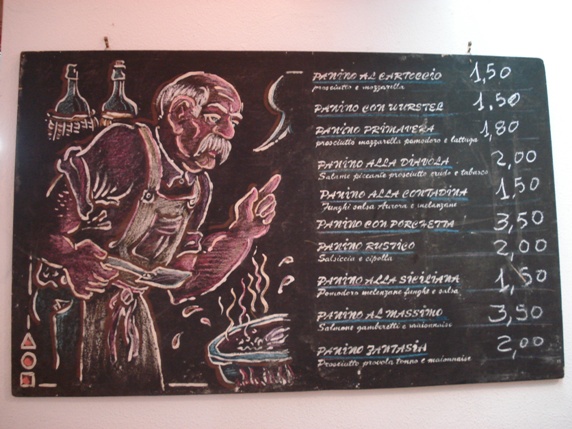 PANINO AL CARTOCCIO 1,50
prosciutto e mozzarella
PANINO CON WURSTEL 1,50
PANINO PRIMAVERA 1,80
prosciutto mozzarella pomodoro e lattuga
PANINO ALLA DIAVOLA 2,00
Salame piccante prosciutto crudo e tabasco
PANINO ALLA CONTADINA 1,50
Funghi salsa Aurora e melanzane
PANINO CON PORCHETTA 3,50
PANINO RUSTICO 2,00
Salsiccia e cipolla
PANINO ALLA SICILIANA 1,50
Pomodoro melanzane funghi e salsa
PANINO AL MASSIMO 3,50
Salmone gamberetti e maionaise
PANINO FANTASIA 2,00
Prosciutto provola tonno e maionnaise